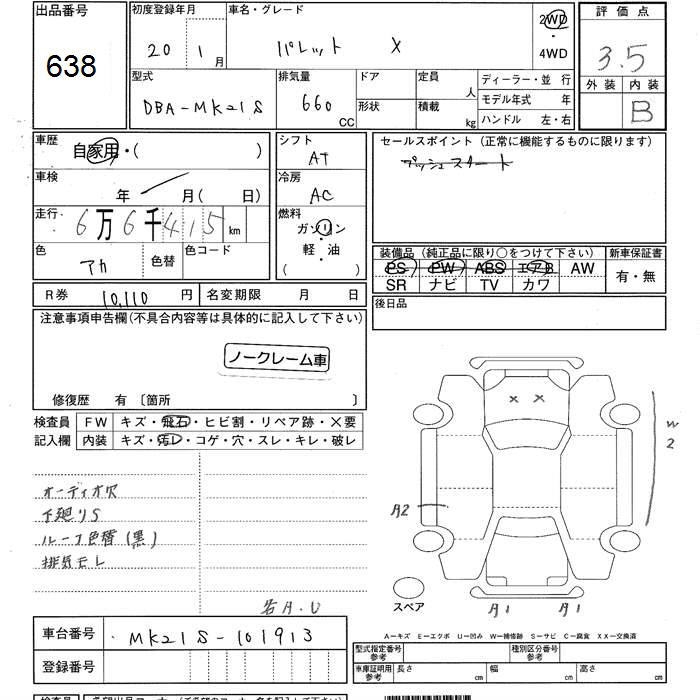 出品番号
638
初度登録年月
20 1月
車名・グレード
パレット X
2WD
・
4WD
評価点
3.5
外装 内装
B
型式
DBA-MK21S
排気量
660
CC
ドア
形状
定員
人
積載
kg
ディーラー・並 行
モデル年式 年
ハンドル 左・右
車歴
自家用・( )
車検
年 月( 日)
走行
6万6千415km
色
アカ
色替
色コード
シフト
AT
冷房
AC
燃料
ガソリン
軽・油
( )
セールスポイント(正常に機能するものに限ります)
プッシュスタート
装備品(純正品に限り○をつけて下さい)
新車保証書
PS PW ABS エアB AW
SR ナビ TV カワ
有・無
R券 10,110円
名変期限 月 日
後日品
注意事項申告欄(不具合内容等は具体的に記入して下さい)
ノークレーム車
修復歴 有 〔箇所 〕
検査員
記入欄
FW キズ・飛石・ヒビ割・リペア跡・×要
内装 キズ・汚レ・コゲ・穴・スレ・キレ・破レ
オーディオ穴
下廻りS
ルーフ色替(黒)
排気モレ
各A.U
× ×
W
2
A2
スペア
A1 A1
A―キズ E―エクボ U―凹み W―補修跡 S―サビ C―腐食 XX―交換済
車台番号 MK21S-101913
登録番号
型式指定番号
参考
種別区分番号
参考
車庫証明用
参考
長さ cm
幅 cm
高さ cm